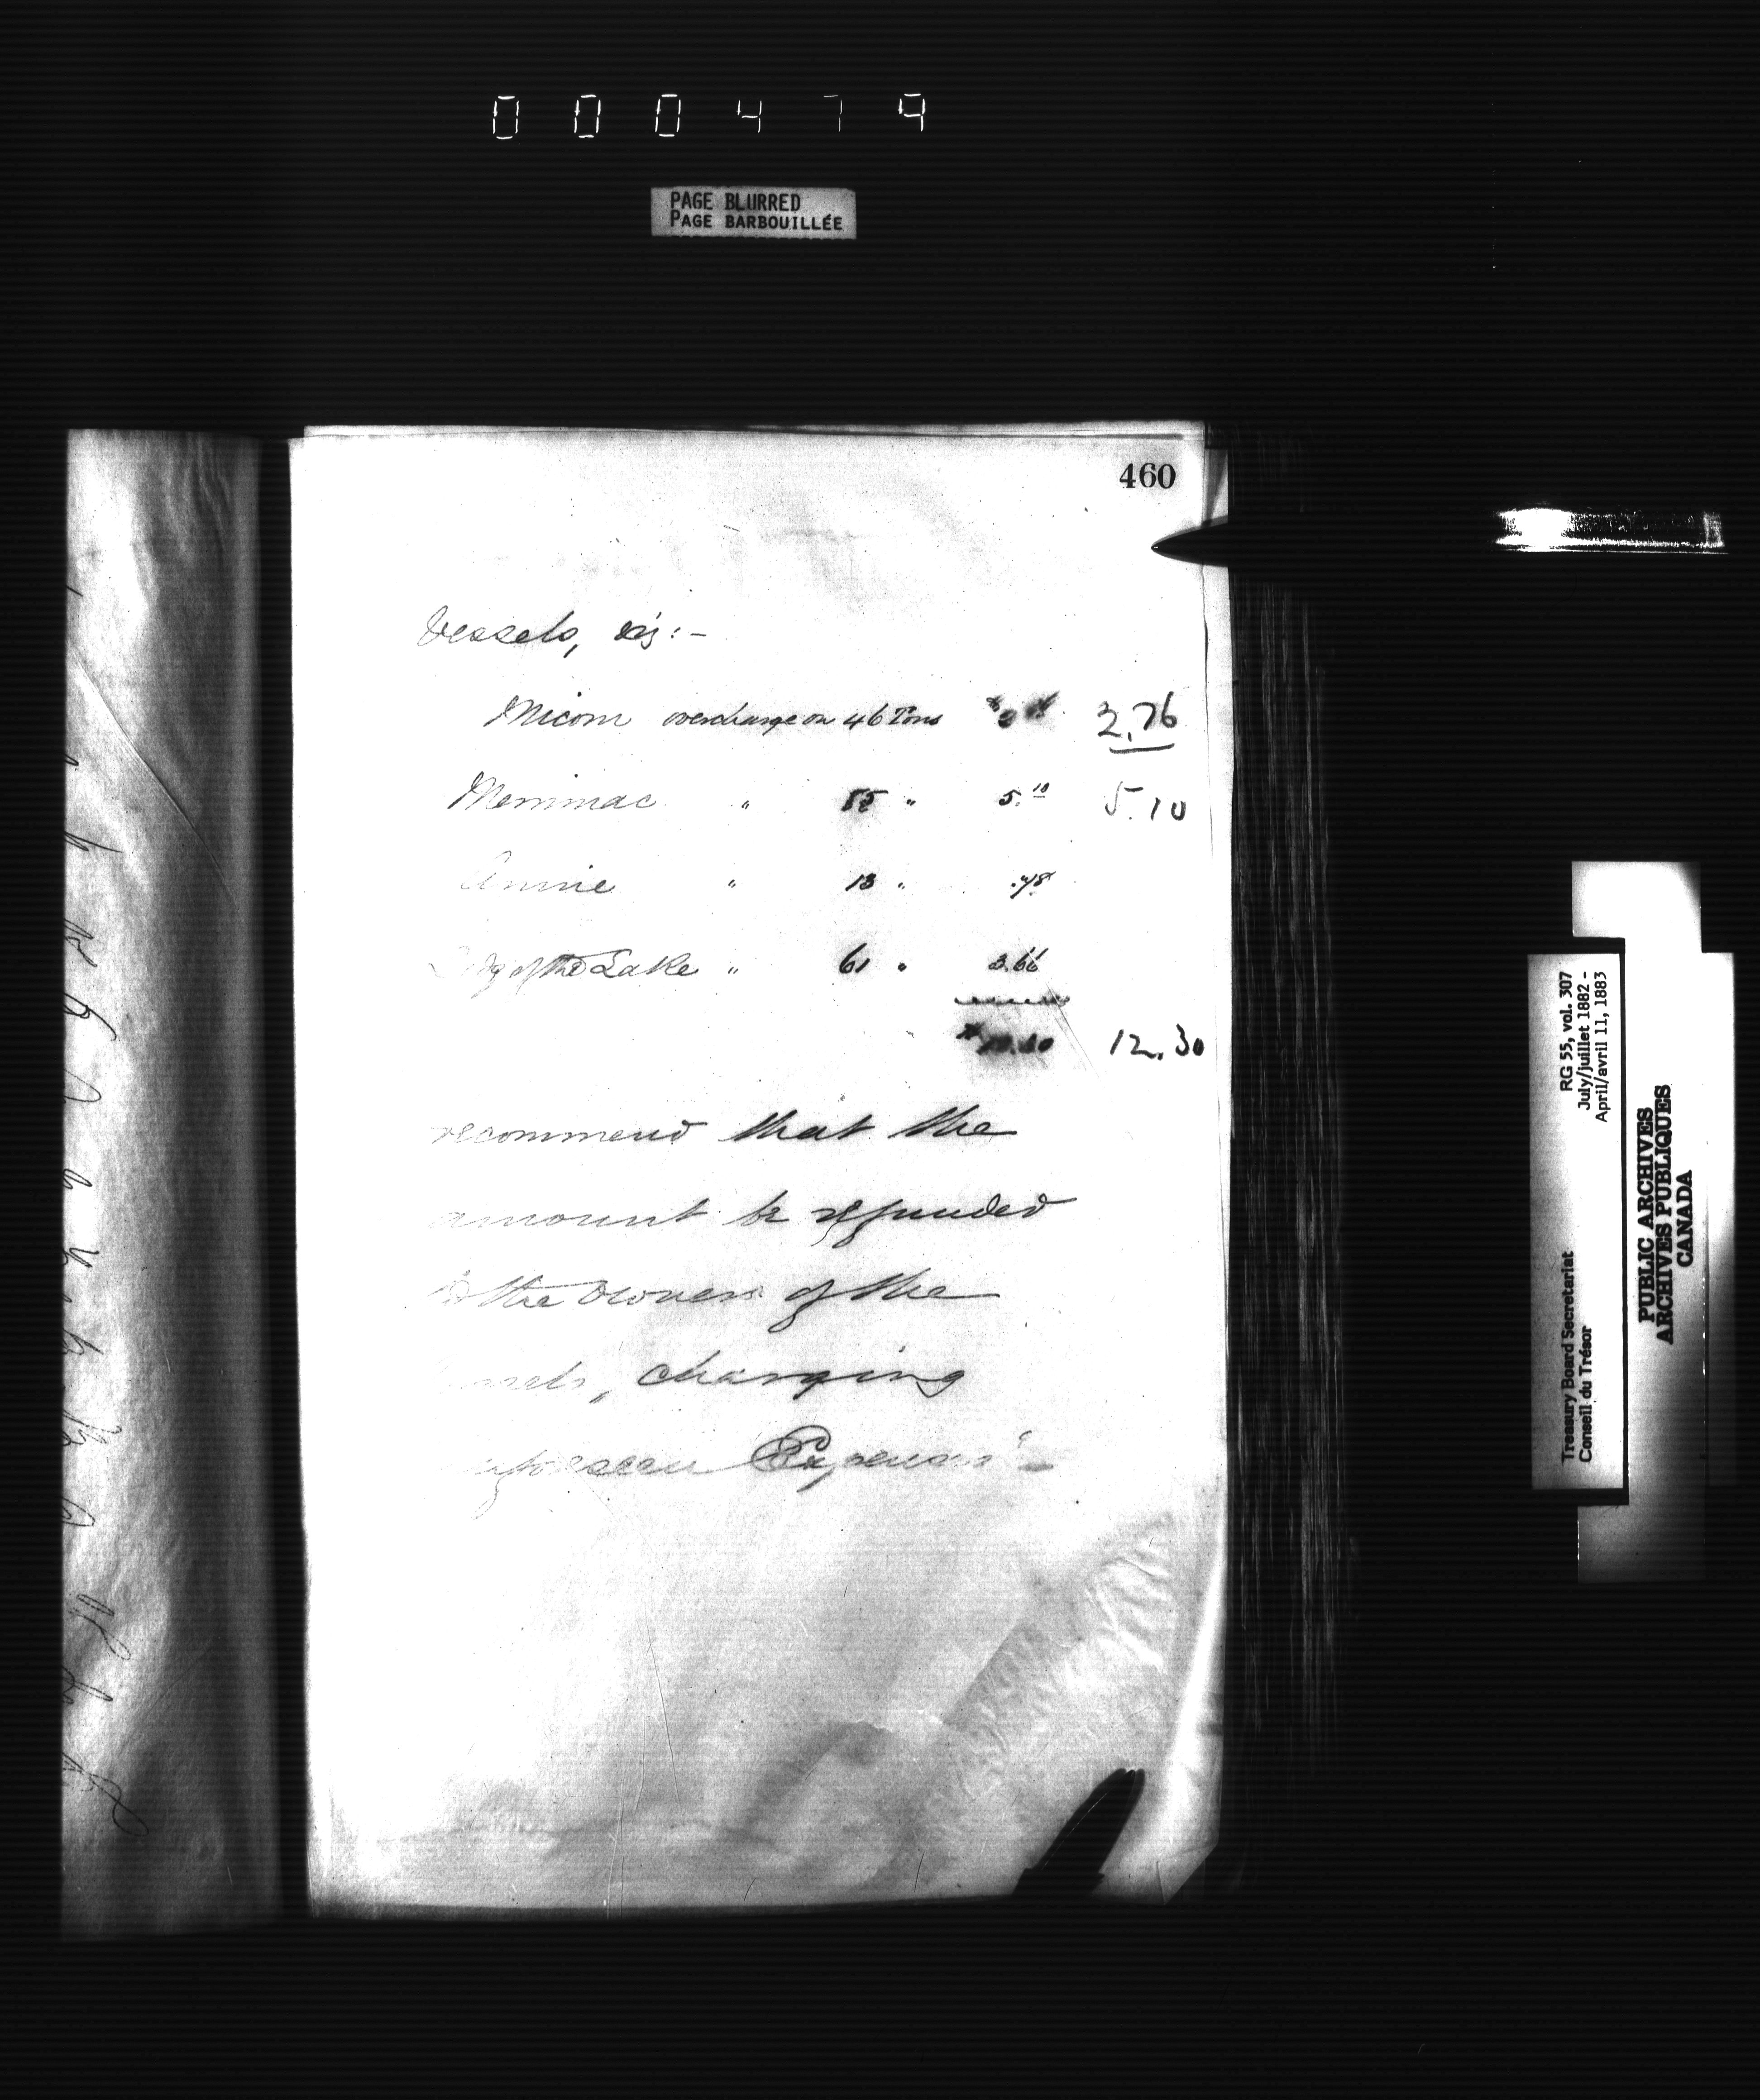 000479
PAGE BLURRED
PAGE BARBOUILLÉE
460
Vessels, viz:-
Micom overcharge on 46 Tons 2.76
Merrimac " 85 " 5.10 5.10
Annie " 13 " .78
Lady of the Lake " 61 " 3.66
12.30
recommend that the
amount be refunded
to the Owners of the
charging
Expenses"
RG 55, vol. 307
July/juillet 1882 -
April/avril 11, 1883
Treasury Board Secretariat
Conseil du Trésor
PUBLIC ARCHIVES
ARCHIVES PUBLIQUES
CANADA